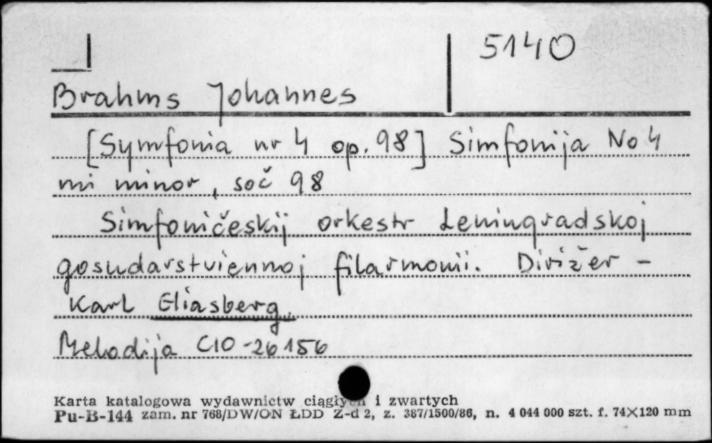 5140
Brahms Johannes
[Symfonia nr 4 op. 98] Simfonija No 4
mi minor, soč 98
Simfoničeskij orkestr Leningradskoj
gosudarstviennoj filarmonii. Dirižer -
Karl Eliasberg.
Melodija C10-26156
Karta katalogowa wydawnictw ciągłych i zwartych
Pu-B-144 zam. nr 768/DW/ON ŁDD Z-d 2, z. 387/1500/86, n. 4 044 000 szt. f. 74×120 mm